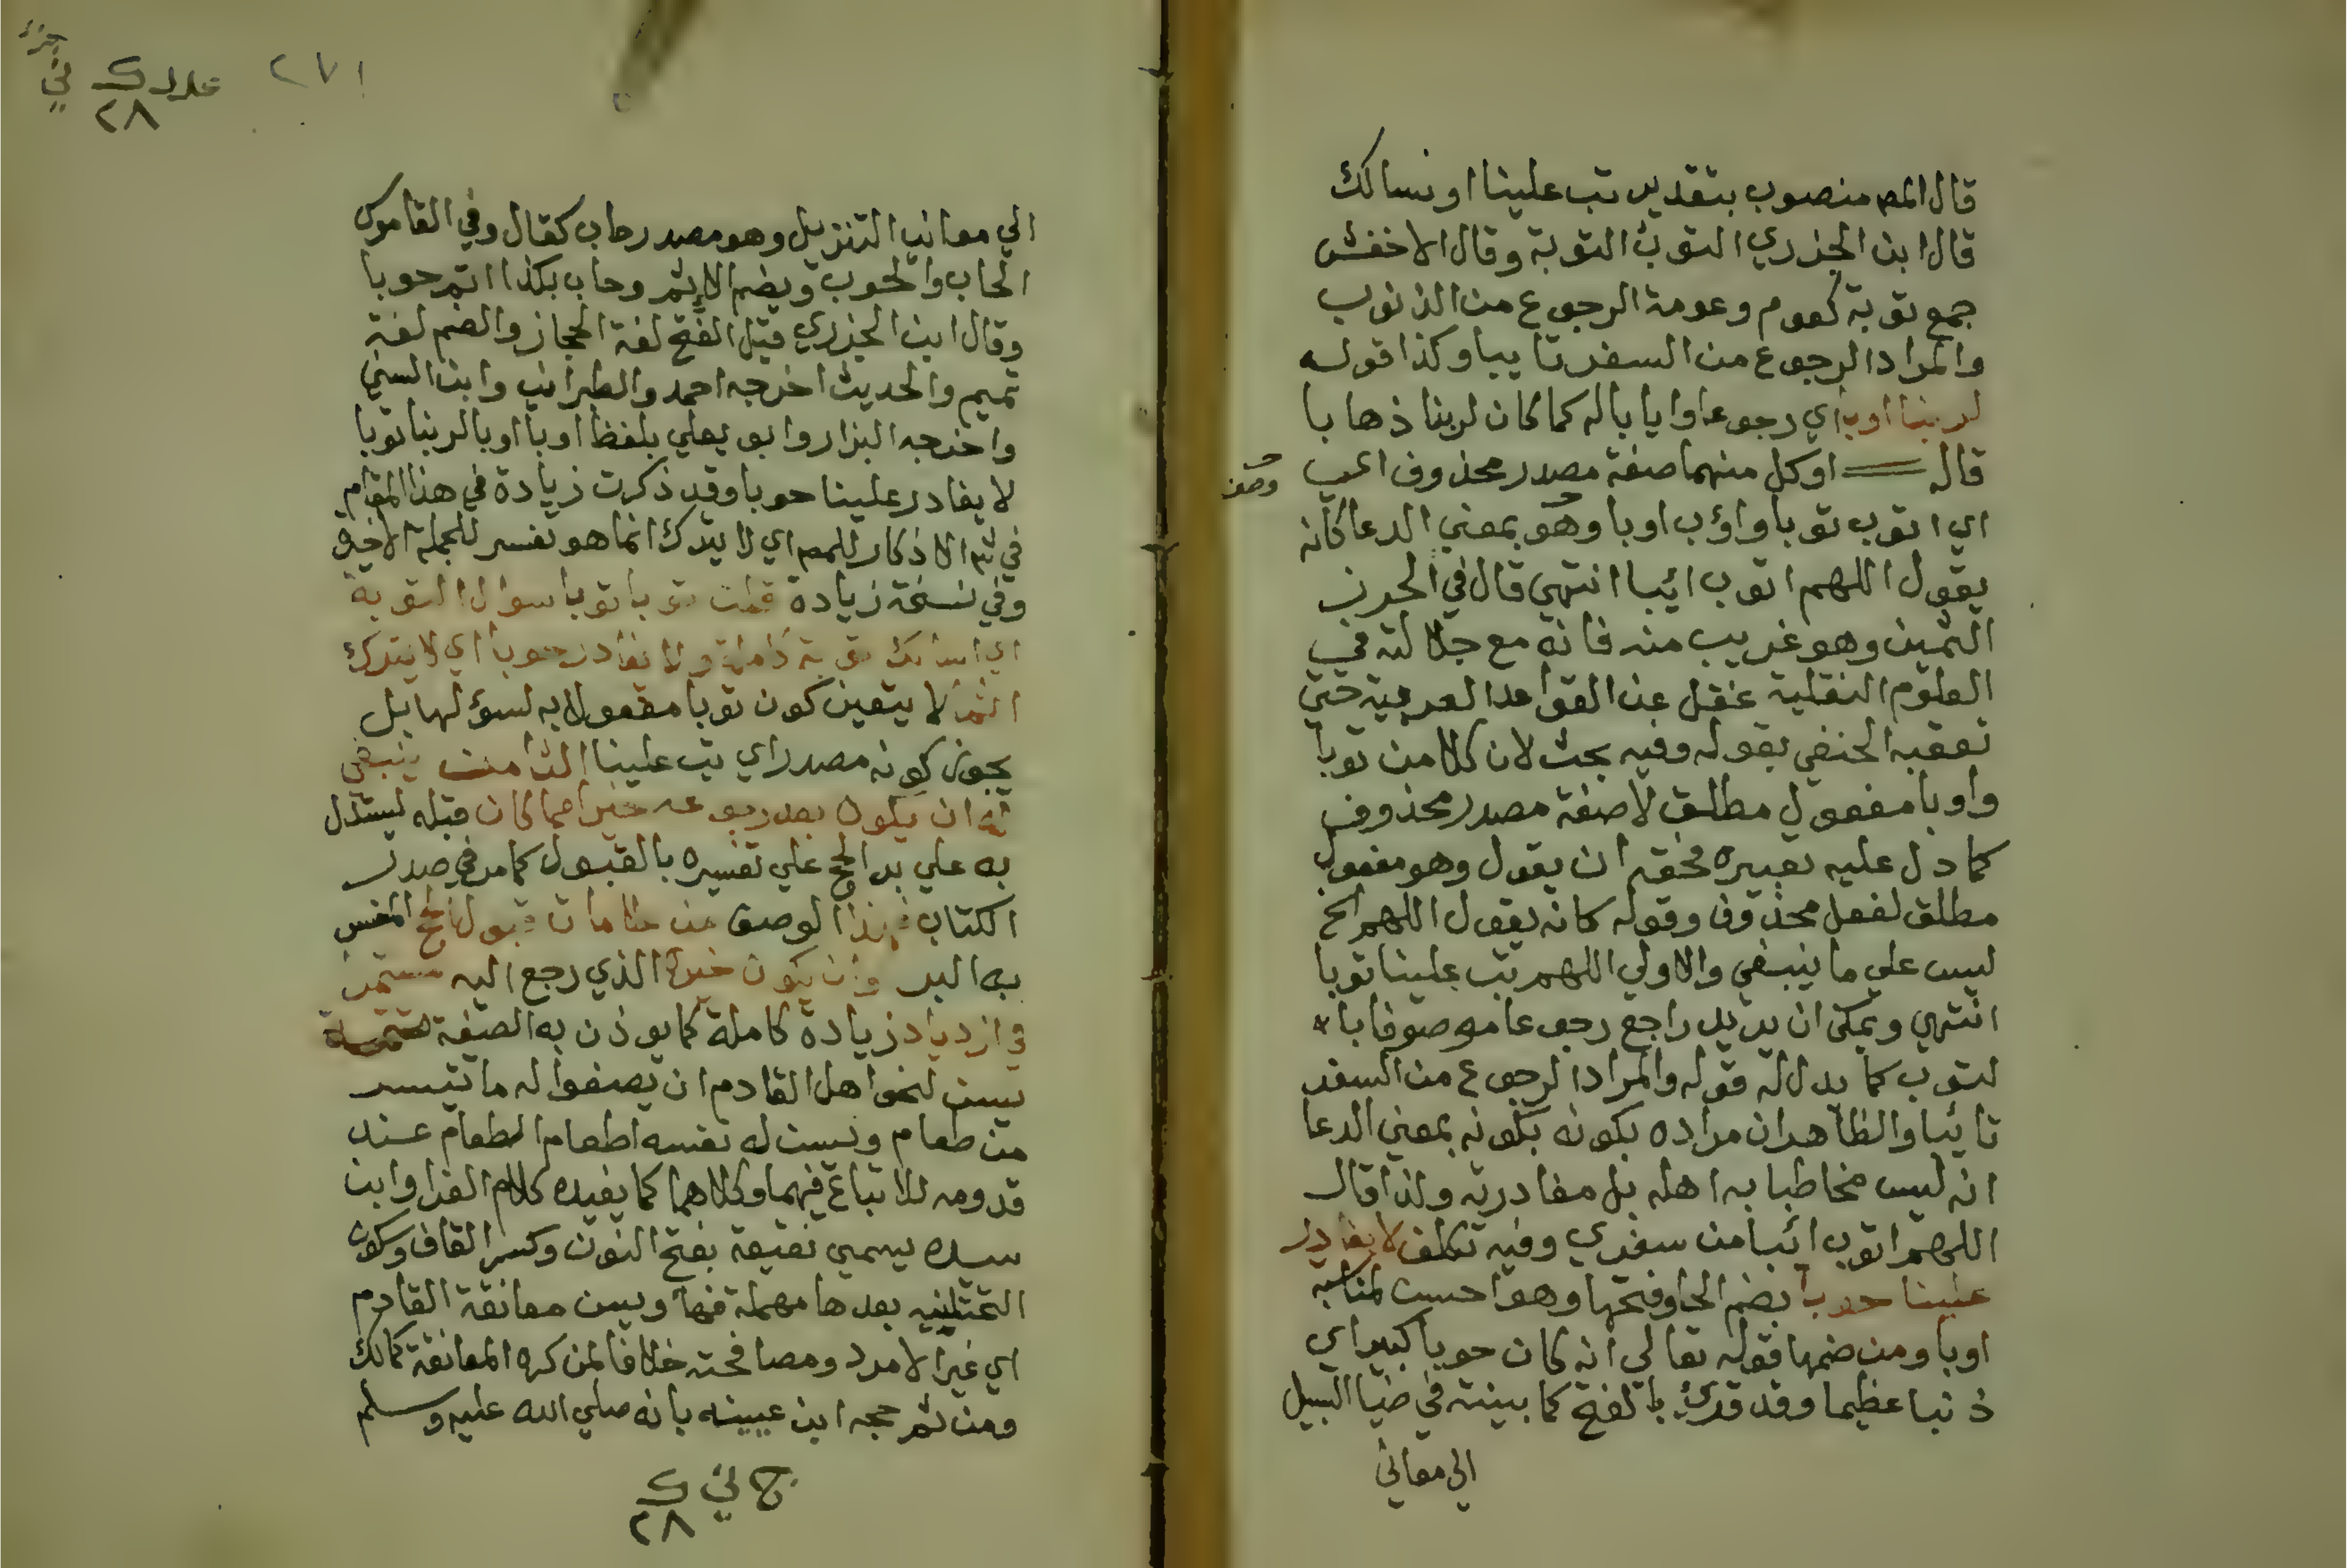 قال المص منصوب بتقدير تب علينا او نسالك
قال ابن الجزري التوب التوبة وقال الاخفش
جمع توبة كعوم وعومة الرجوع من الذنوب
والمراد الرجوع من السفر تايبا وكذا قوله
لربنا اوبا اي رجوعا وايابا له كما كان لربنا ذهابا
قاله او كل منهما صفة مصدر محذوف اعني
وصف
اي اتوب توبا واؤب اوبا وهو بمعني الدعا كانه
يقول اللهم اتوب ائبا انتهي قال في الحرز
الثمين وهو غريب منه فانه مع جلالته في
العلوم النقلية غفل عن القواعد العربية حتي
تعقبه الحنفي بقوله وفيه بحث لان كلا من توبا
واوبا مفعول مطلق لا صفة مصدر محذوف
كما دل عليه تعبيره فحقه ان يقول وهو مفعول
مطلق لفعل محذوف وقوله كانه يقول اللهم الخ
ليس علي ما ينبغي والاولي اللهم تب علينا توبا
انتهي ويمكن ان يريد راجع رجوعا موصوفا با
لتوب كما يدل له قوله والمراد الرجوع من السفر
تائبا والظاهر ان مراده بكونه بكونه بمعني الدعا
انه ليس مخاطبا به اهله بل مغادرته ولذا قال
اللهم اتوب ائبا من سفري وفيه تكلف لا يغادر
علينا حوبا بضم الحا وفتحها وهو احسن لمناسبه
اوبا ومن ضمها قوله تعالي انه كان حوبا كبيرا اي
ذنبا عظيما وقد قرئ بالفتح كما بينته في ضيا السبيل
الي معاني
٢٧١
٢٨
الي معاني التنزيل وهو مصدر حاب كقال وفي القاموس
الحاب والحوب ويضم الاثم وحاب بكذا اثم حوبا
وقال ابن الجزري قيل الفتح لغة الحجاز والضم لغة
تميم والحديث اخرجه احمد والطبراني وابن السني
واخرجه البزار وابو يعلي بلفظ اوبا اوبا لربنا توبا
لا يغادر علينا حوبا وقد ذكرت زيادة في هذا المقام
في الاذكار للمص اي لا يترك انما هو تفسر للجملة الاخيرة
وفي نسخة زيادة قلت توبا توبا سوال التوبة
اي اسالك توبة كاملة ولا يغادر حوبا اي لا يترك
اثما لا يتعين كون توبا مفعولا به لسؤلها بل
يجوز كونه مصدرا اي تب علينا الثامن ينبغي
له ان يكون بعد رجوعه خيرا مما كان قبله ليستدل
به علي بر الحج علي تفسيره بالقبول كما مر في صدر
الكتاب فهذا الوصف من علامات قبول الحج المفسر
به البر وان يكون خيره الذي رجع اليه مستمرا
في ازدياد زيادة كاملة كما يوذن به الصيغة تتمة
يسن لنحو اهل القادم ان يصنعوا له ما تيسر
من طعام ويسن له نفسه اطعام الطعام عند
قدومه للاتباع فيهما وكلاهما كما يفيده كلام الفرا وابن
سيده يسمي نقيعة بفتح النون وكسر القاف وسكون
التحتينيه بعدها مهملة فها ويسن معانقة القادم
اي غير الامرد ومصافحته خلافا لمن كره المعانقة كمالك
ومن ثم حجه ابن عيينه بانه صلي الله عليه وسلم
٢٨